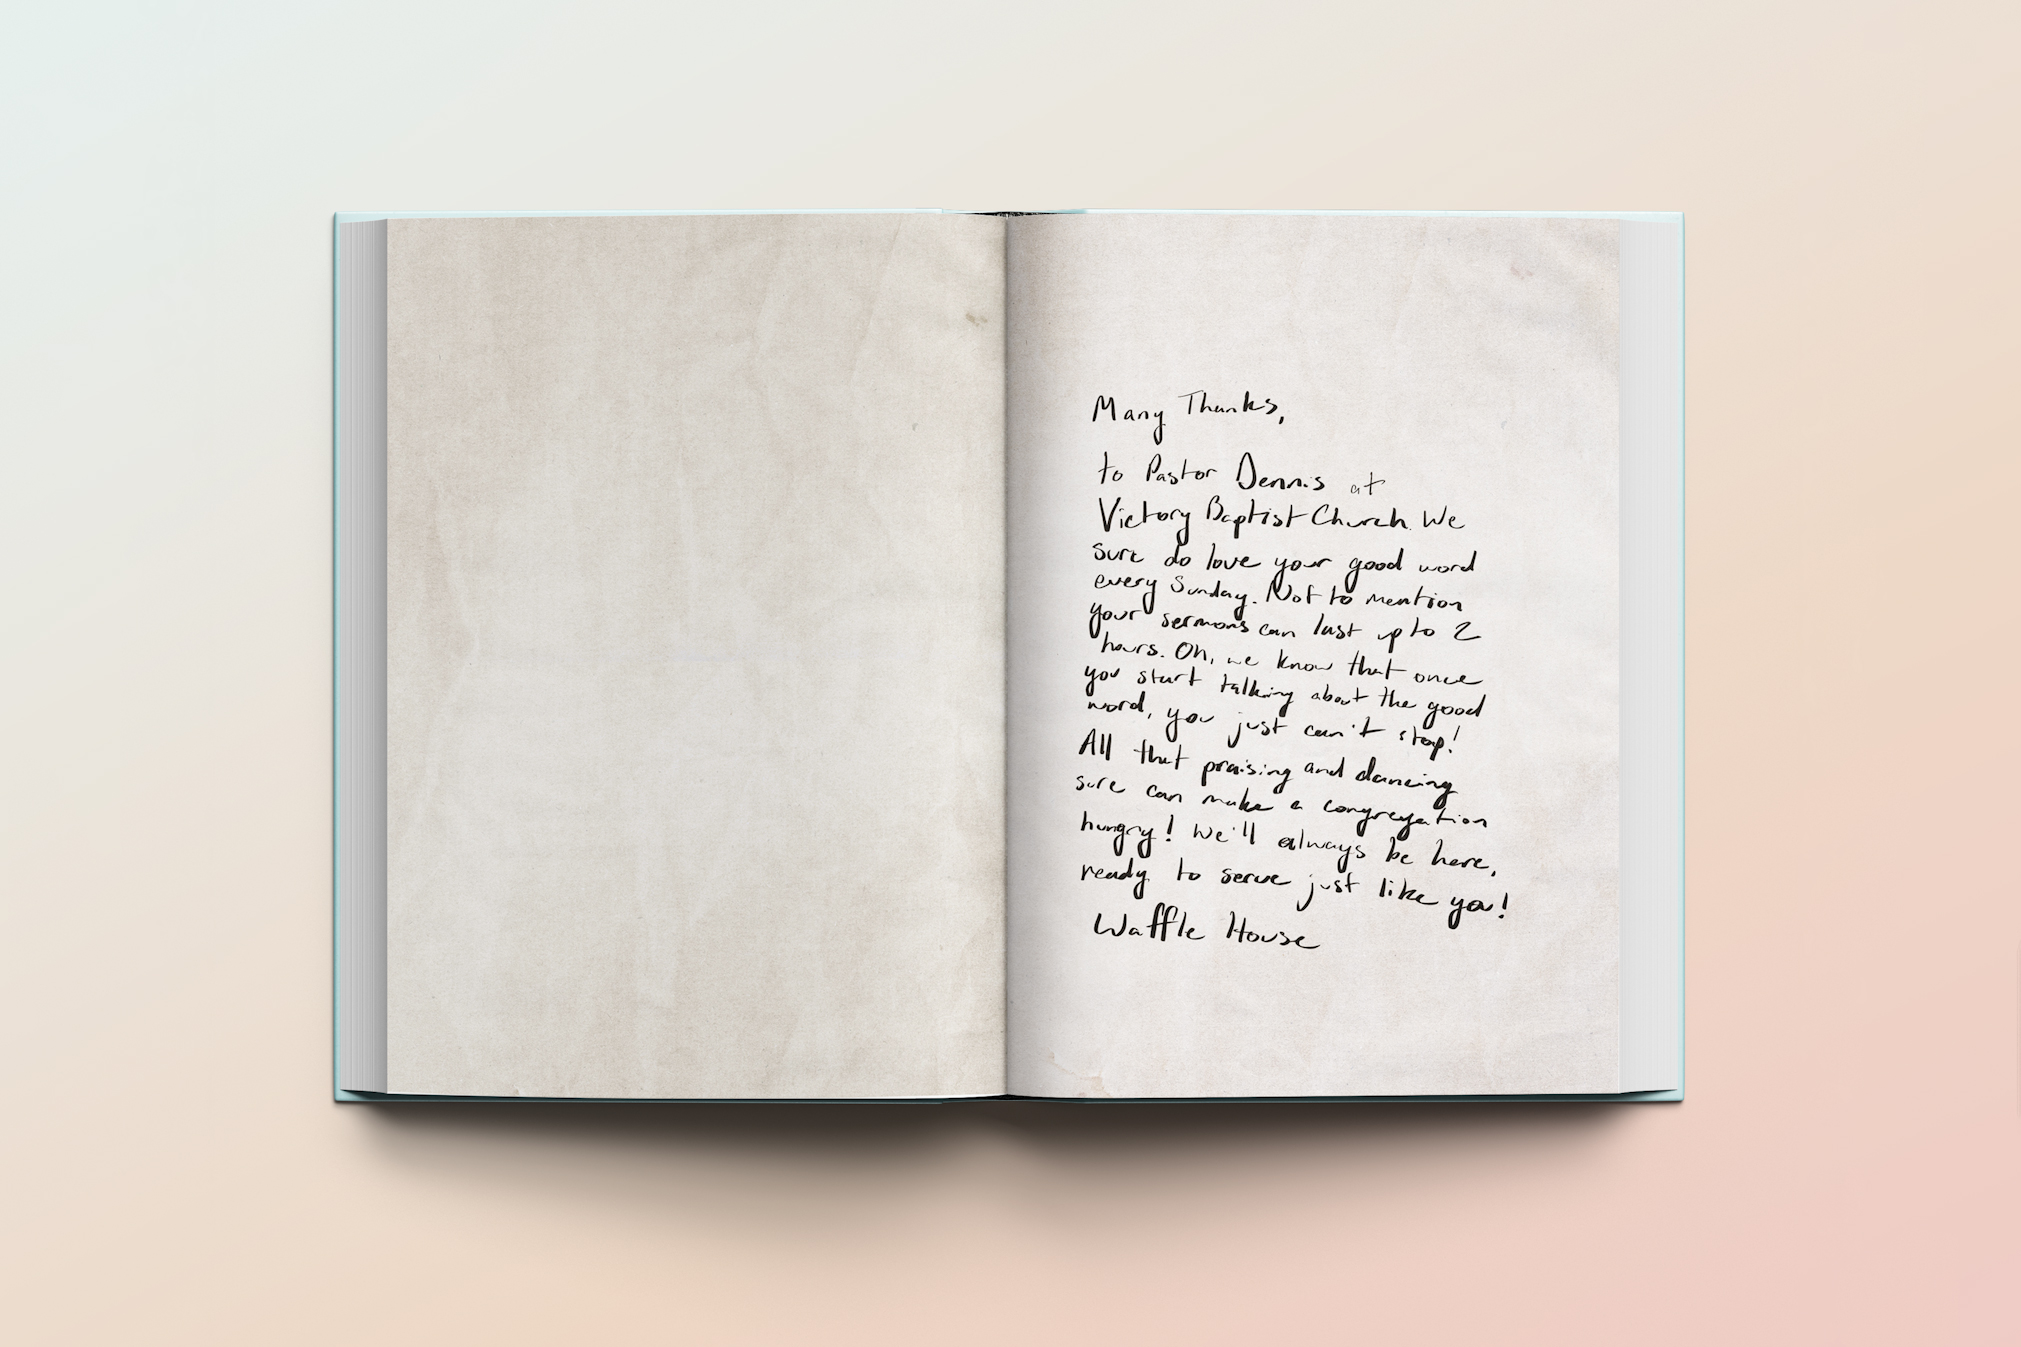 Many Thanks,
to Pastor Dennis at
Victory Baptist Church. We
sure do love your good word
every Sunday. Not to mention
your sermons can last up to 2
hours. Oh, we know that once
you start talking about the good
word, you just can't stop!
All that praising and dancing
sure can make a congregation
hungry! We'll always be here,
ready to serve just like you!
Waffle House